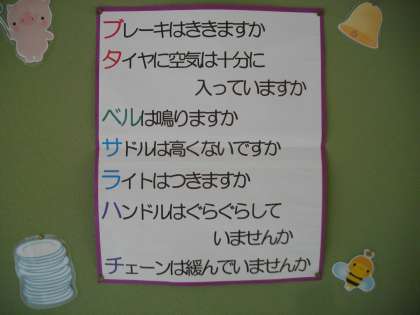 ブレーキはききますか
タイヤに空気は十分に
入っていますか
ベルは鳴りますか
サドルは高くないですか
ライトはつきますか
ハンドルはぐらぐらして
いませんか
チェーンは緩んでいませんか